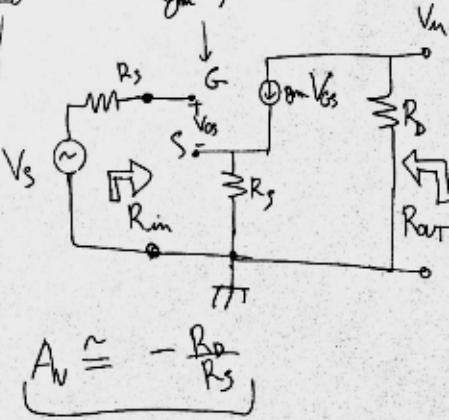 gm
Vm
Rs
G
+
VGS
gm VGS
S -
RD
Vs
~
Rs
Rin
ROUT
AN ≅ - RD/RS